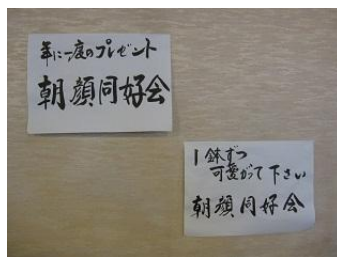 年に一度のプレゼント
朝顔同好会
1鉢ずつ
可愛がって下さい
朝顔同好会